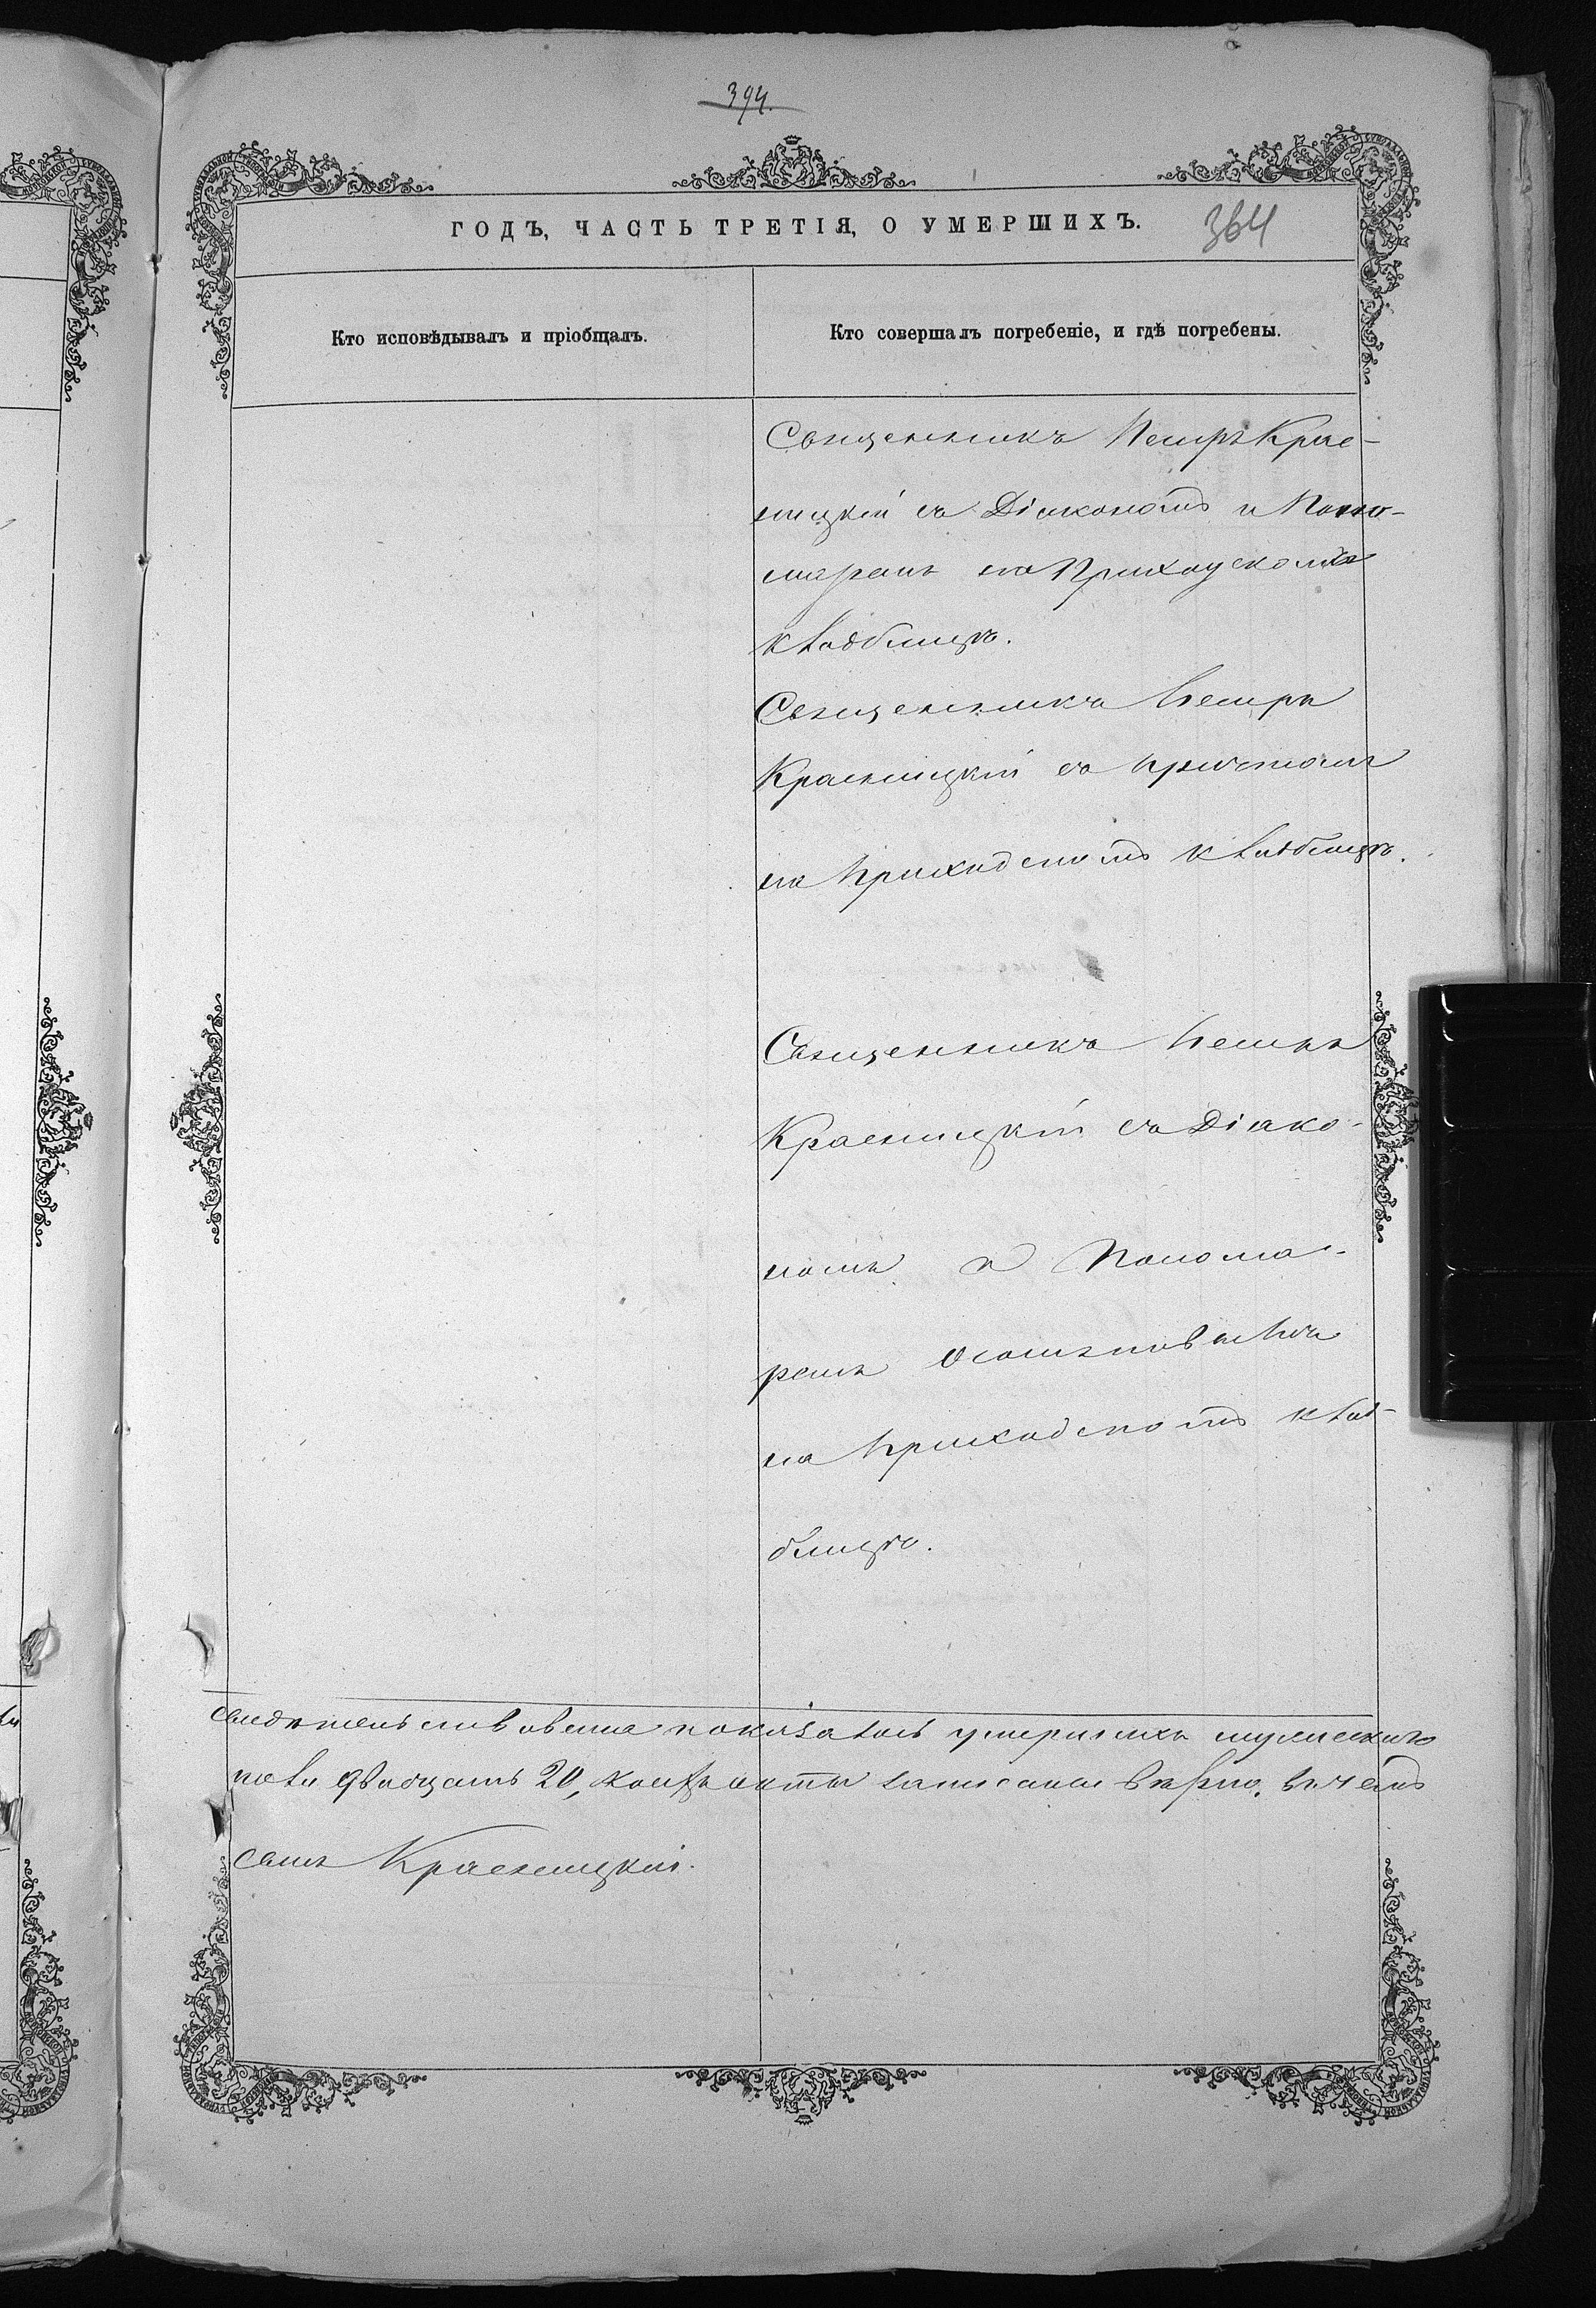 394.
ГОДЪ, ЧАСТЬ ТРЕТІЯ, О УМЕРШИХЪ.
364
Кто исповѣдывалъ и пріобщалъ.
Кто совершалъ погребеніе, и гдѣ погребены.
Священникъ Петръ Крас-
ницкій съ Діакономъ и Поно-
маремъ на Приходскомъ
кладбищѣ.
Священникъ Петръ
Красницкій съ причтомъ
на приходскомъ кладбищѣ.
Священникъ Петръ
Красницкій съ Діако-
номъ и Понома-
ремъ
на приходскомъ клад-
бищѣ.
умершихъ мужескаго
пола двадцать 20, акты записаны вѣрно, въ чемъ
Красницкій.